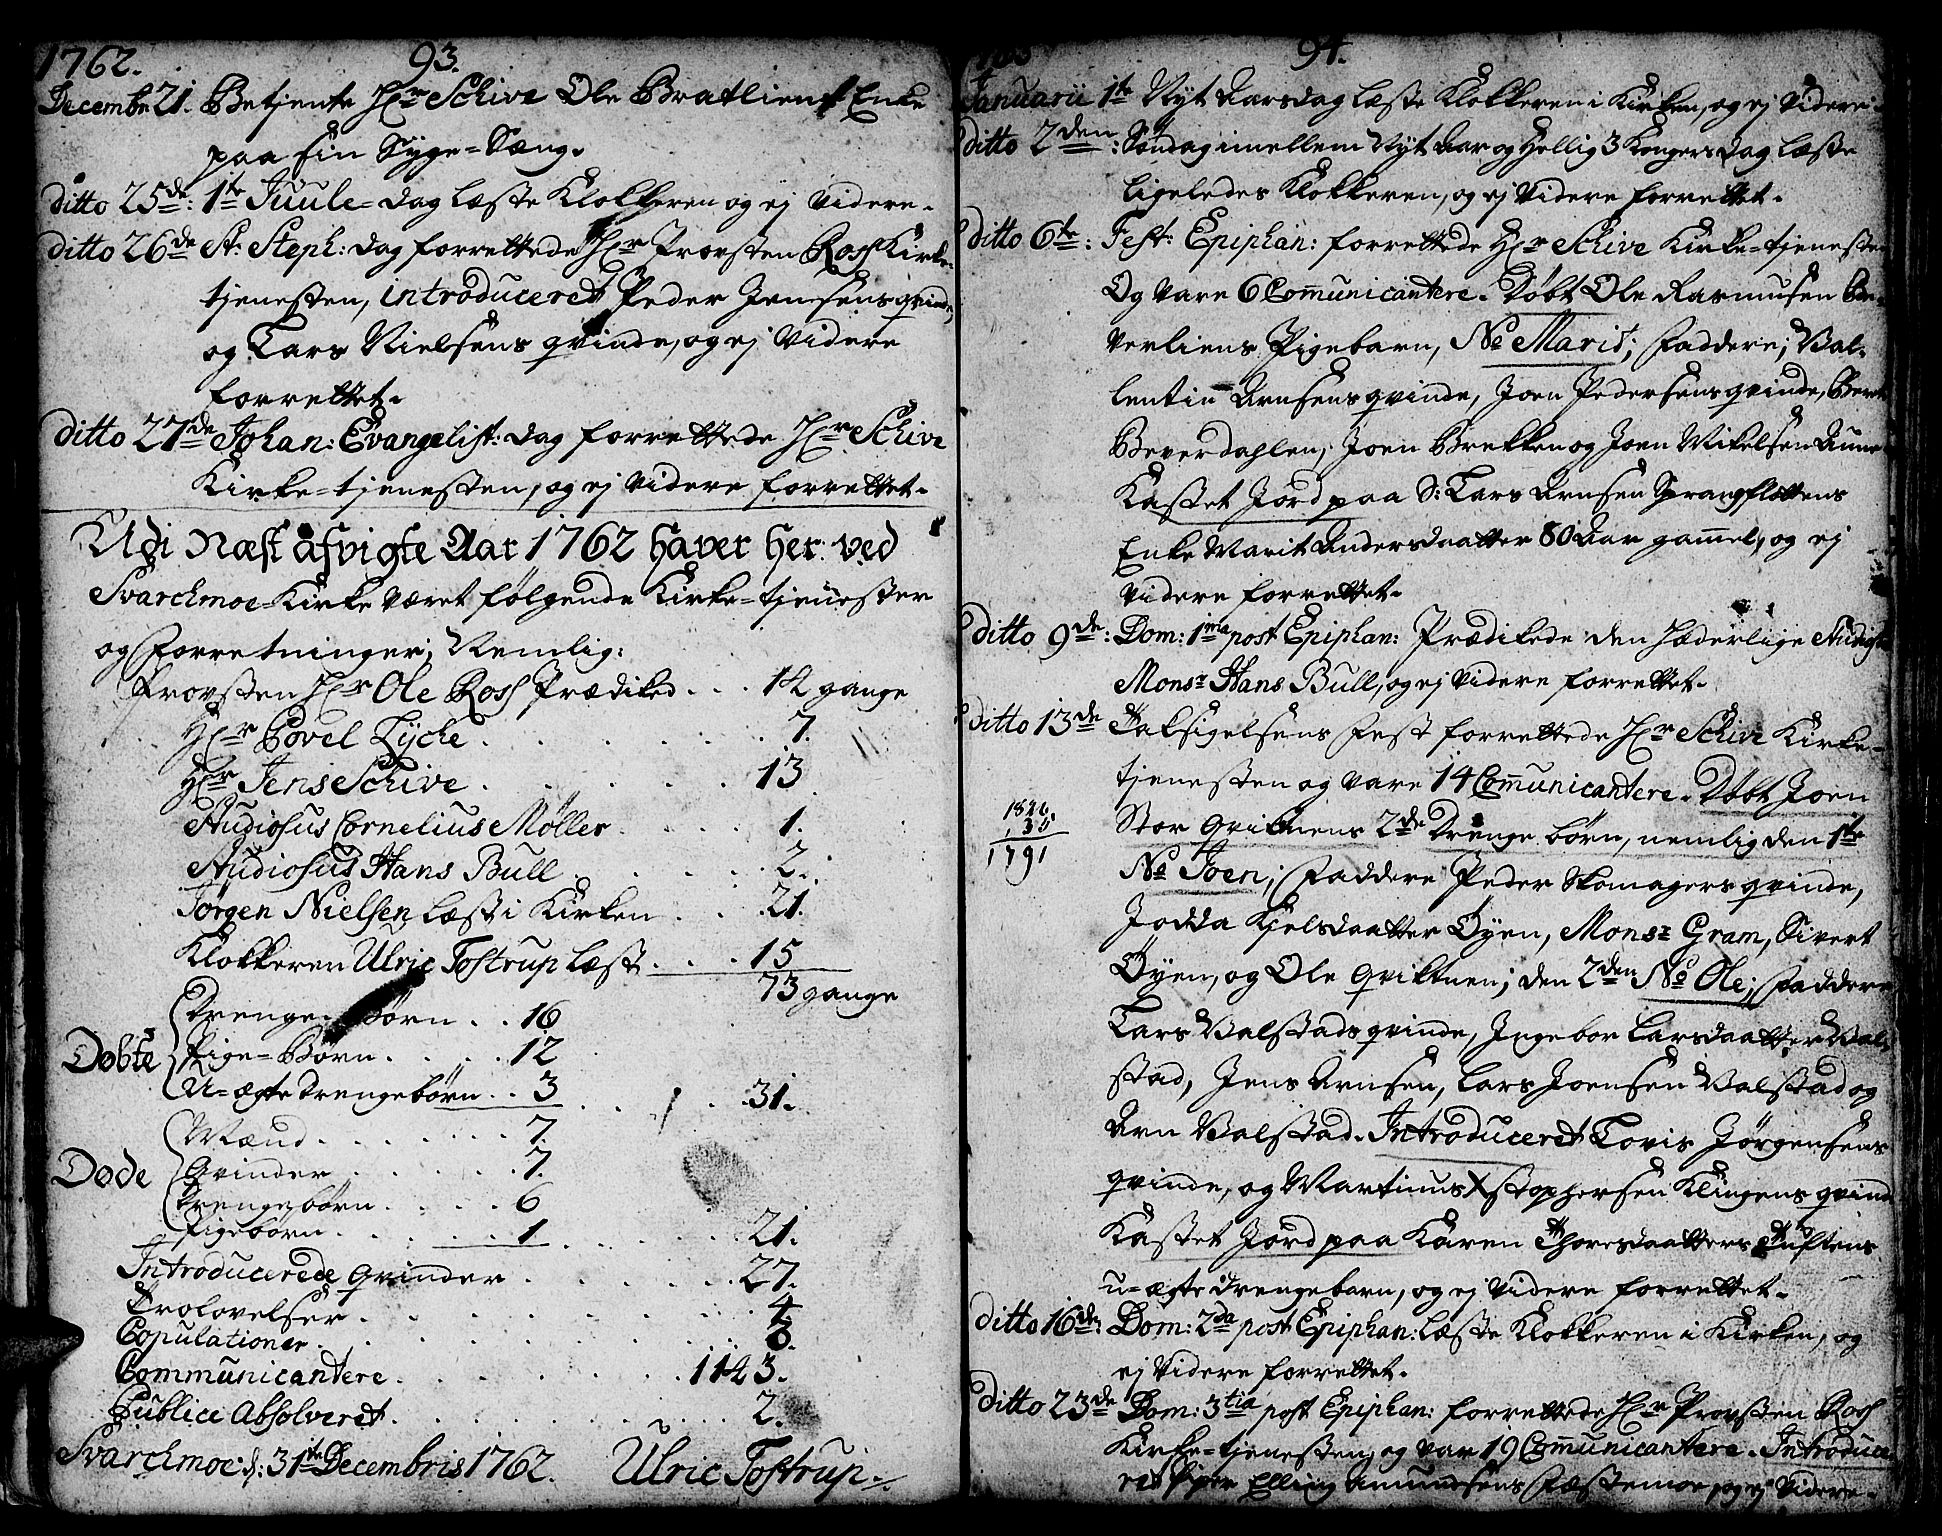 1762.
93.
Decembr 21. Betjente Hr Schive Ole Bratliens Enke
paa sin Syge-Sæng.
ditto 25de: 1te Juule-dag læste Klokkeren og ej videre.
ditto 26de St: Steph: dag forrettede Hr Provsten Ross Kirke-
tjenesten, introduceret Peder Jensens qvinde,
og Lars Nielsens qvinde, og ej videre
forrettet.
ditto 27de Johan: Evangelist: dag forrettede Hr Schive
Kirke-tjenesten, og ej videre forrettet.
Udi Næst afvigte Aar 1762 haver her ved
Svarchmoe-Kirke været følgende Kirke-tjenester
og Forretninger; Nemlig:
Provsten Hr Ole Ross Prædiked . . . 14 gange
Hr Povel Lyche . . . 7.
Hr Jens Schive . . . 13
Studiosus Cornelius Møller . . . 1.
Studiosus Hans Bull . . . 2.
Jørgen Nielsen læst i Kirken . . . 21.
Klokkeren Ulric Tostrup læst . . . 15
73 gange
Døbte
Drenge-Børn . . 16
Pige-Børn . . . 12
U-ægte Drengebørn . . 3 . . . 31.
Døde
Mænd . . . 7.
Qvinder . . . 7.
Drengebørn . . . 6
Pigebørn . . . 1 . . . 21.
Introducerede Qvinder . . . 27.
Trolovelser . . . 4
Copulationer . . . 6.
Communicantere . . . 1143.
Publice Absolveret . . . 2.
Svarchmoe d: 31te Decembris 1762. Ulric Tostrup.
94.
Januarii 1te Nyt Aarsdag læste Klokkeren i Kirken, og ej videre.
ditto 2den: Søndag imellem Nyt Aar og Hellig 3 Kongers dag læste
ligeledes Klokkeren, og ej videre forrettet.
ditto 6te: Fest: Epiphan: forrettede Hr Schive Kirke-tjenesten
Og vare 6 Comunicantere. Døbt Ole Rasmusen Be-
verliens Pigebarn, No Marit; Faddere; Val-
lentin Arnsens qvinde, Joen Pedersens qvinde, Beret
Beverdahlen, Joen Brekken og Joen Mikelsen Aune
Kastet Jord paa S: Lars Arnsen Sprangflottens
Enke Marit Andersdaatter 80 Aar gamel, og ej
videre forrettet.
ditto 9de: Dom: 1ma post Epiphan: Prædikede den Hæderlige Studios
Monsr Hans Bull, og ej videre forrettet.
ditto 13de Taksigelsens Fest forrettede Hr Schive Kirke-
tjenesten og vare 14 Comunicantere. Døbt Joen
1826
35
1791
Stor Qviknens 2de Drenge børn, nemlig den 1te
No Joen; Faddere Peder Skomagers qvinde,
Jodda Kjelsdaatter Øyen, Monsr Gram, Sivert
Øyen, og Ole Qviknen; den 2den No Ole; Faddere
Lars Valstads qvinde, Ingebor Larsdaatter Val-
stad, Jens Arnsen, Lars Joensen Valstad og
Arn Valstad. Introduceret Tovis Jørgensens
qvinde, og Martinus Xstophersen Klingens qvinde
Kastet Jord paa Karen Thoresdaatters Tuftens
u-ægte drengebarn, og ej videre forrettet.
ditto 16de: Dom: 2da post Epiphan: læste Klokkeren i Kirken, og
ej videre forrettet.
ditto 23de Dom: 3tia post Epiphan: forrettede Hr Provsten Ross
Kirke-tjenesten og var 19 Comunicantere. Introduce-
ret Elling Amundsens Fæstemoe, og ej videre.